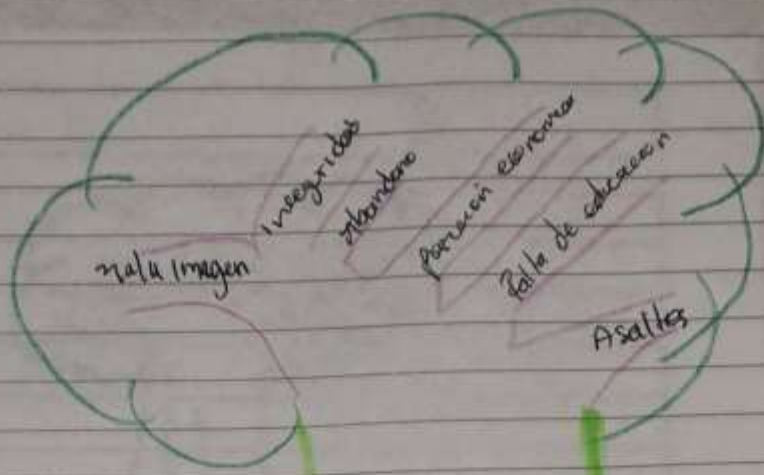 mala imagen
Inseguridad
Abandono
economica
Falta de educacion
Asaltos